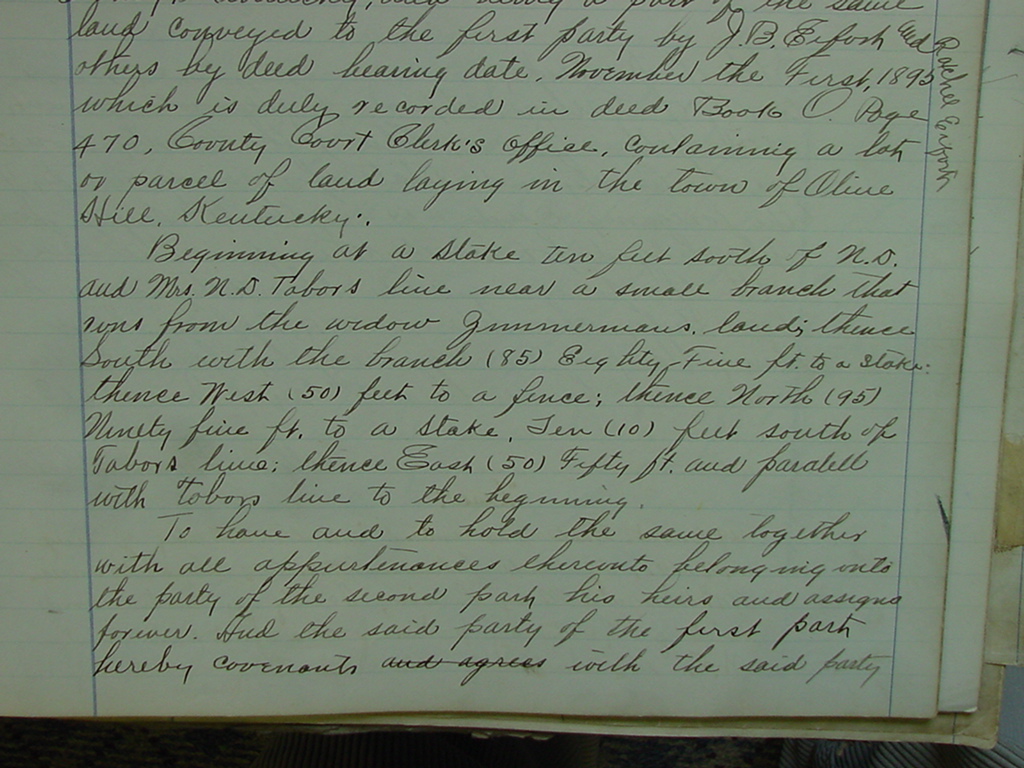 Kentucky, and being a part of the same
land conveyed to the first party by J.B. Erfort and
others by deed bearing date, November the First, 1895
which is duly recorded in deed Book O. Page
470, County Court Clerk's office, containing a lot
or parcel of land laying in the town of Olive
Hill, Kentucky:.
Beginning at a stake ten feet south of N.D.
and Mrs. N.D. Tabors line near a small branch that
runs from the widow Zimmermans, land; thence
South with the branch (85) Eighty Five ft. to a stake:
thence West (50) feet to a fence; thence North (95)
Ninety five ft. to a stake, Ten (10) feet south of
Tabors line; thence East (50) Fifty ft. and paralell
with Tabors line to the beginning.
To have and to hold the same together
with all appurtenances thereunto belonging unto
the party of the second part his heirs and assigns
forever. And the said party of the first part
hereby covenants and agrees with the said party
Rachel Erfort